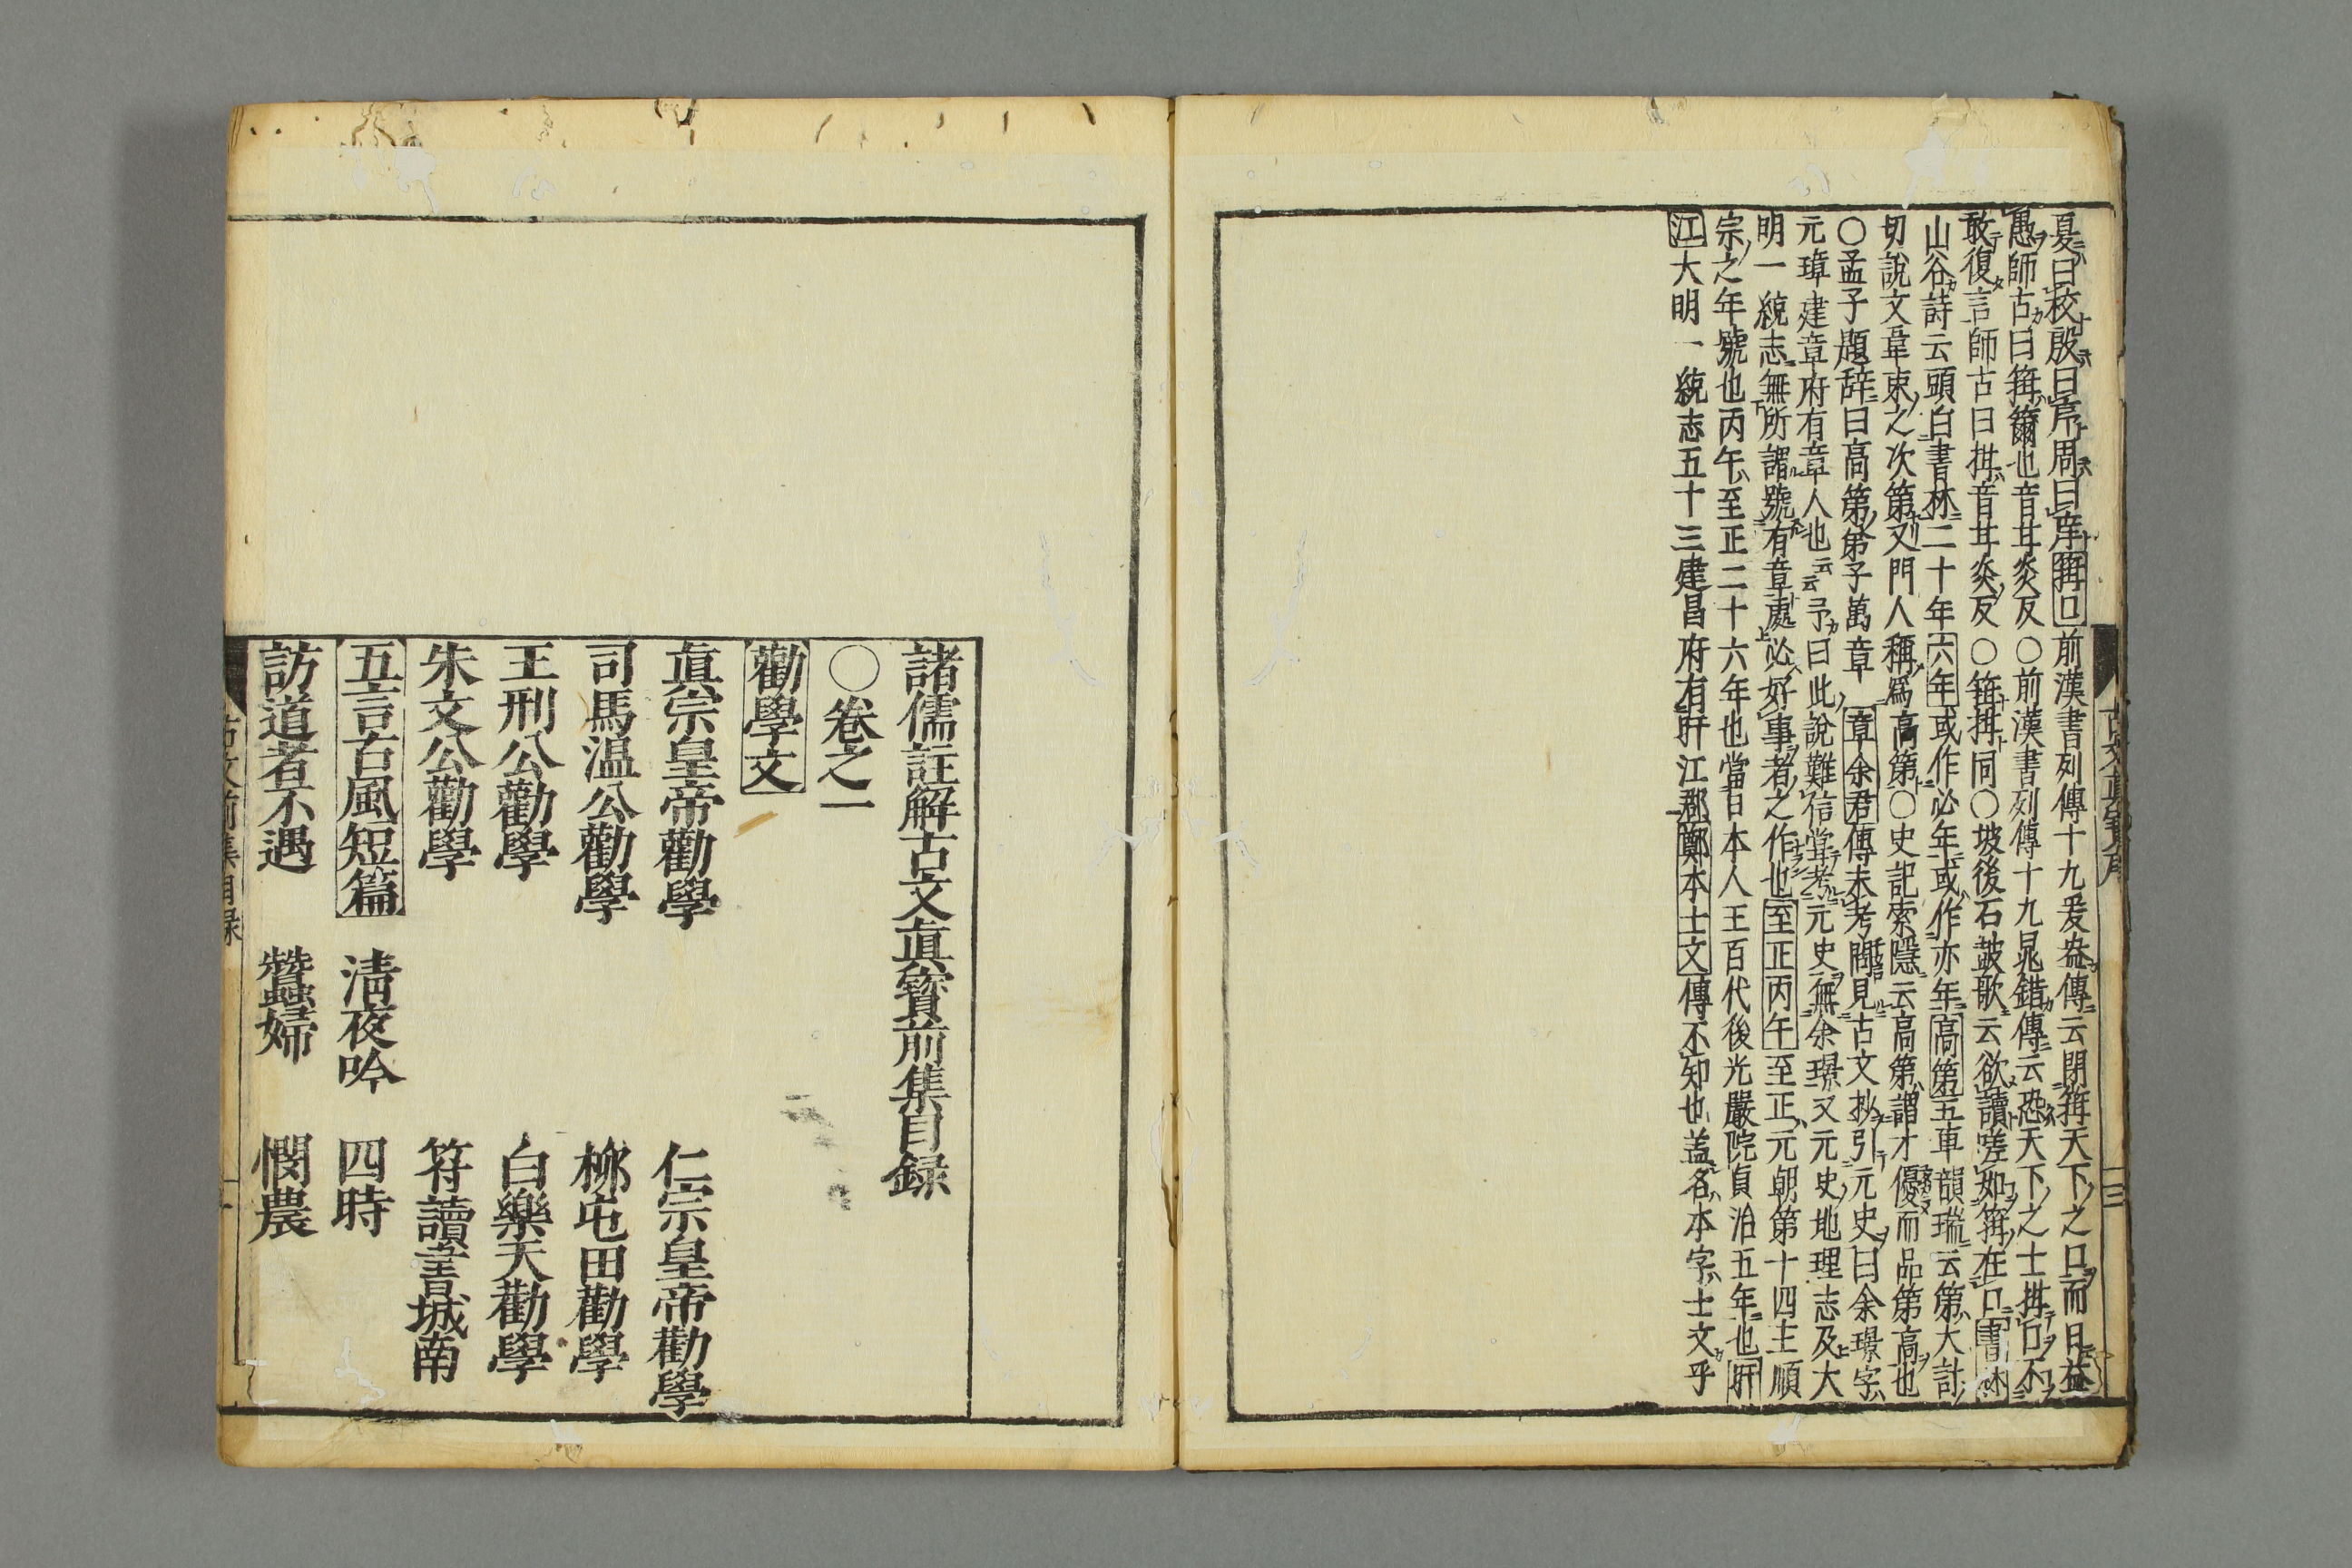 夏曰校殷曰序周曰庠箝口前漢書列傳十九爰盎傳云閉箝天下之口而日益
愚師古曰箝籋也音其炎反〇前漢書列傳十九晁錯傳云恐天下之士拑口不
敢復言師古曰拑音其炎反〇箝拑同〇坡後石鼓歌云欲讀嗟如箝在口書林
山谷詩云頭白書林二十年六年或作必年或作亦年高第五車韻瑞云第大計
切說文韋束之次第又門人稱爲高第〇史記索隱云高第謂才優而品第高也
〇孟子題辞曰高第第子萬章章余君傳未考問見古文抄引元史曰余璟字
元璋建章府有章人也云云予曰此說難信嘗考之元史無余璟又元史地理志及大
明一統志無所謂號有章處必好事者之作也至正丙午至正元朝第十四主順
宗之年號也丙午至正二十六年也當日本人王百代後光嚴院貞治五年也盱
江大明一統志五十三建昌府有盱江郡鄭本士文傳不知也盖名本字士文乎
古文真寳序
三
諸儒註解古文眞寳前集目録
〇卷之一
勸學文
眞宗皇帝勸學 仁宗皇帝勸學
司馬温公勸學 栁屯田勸學
王刑公勸學 白樂天勸學
朱文公勸學 符讀書城南
五言古風短篇 淸夜吟 四時
訪道者不遇 蠶婦 憫農
古文前集目録